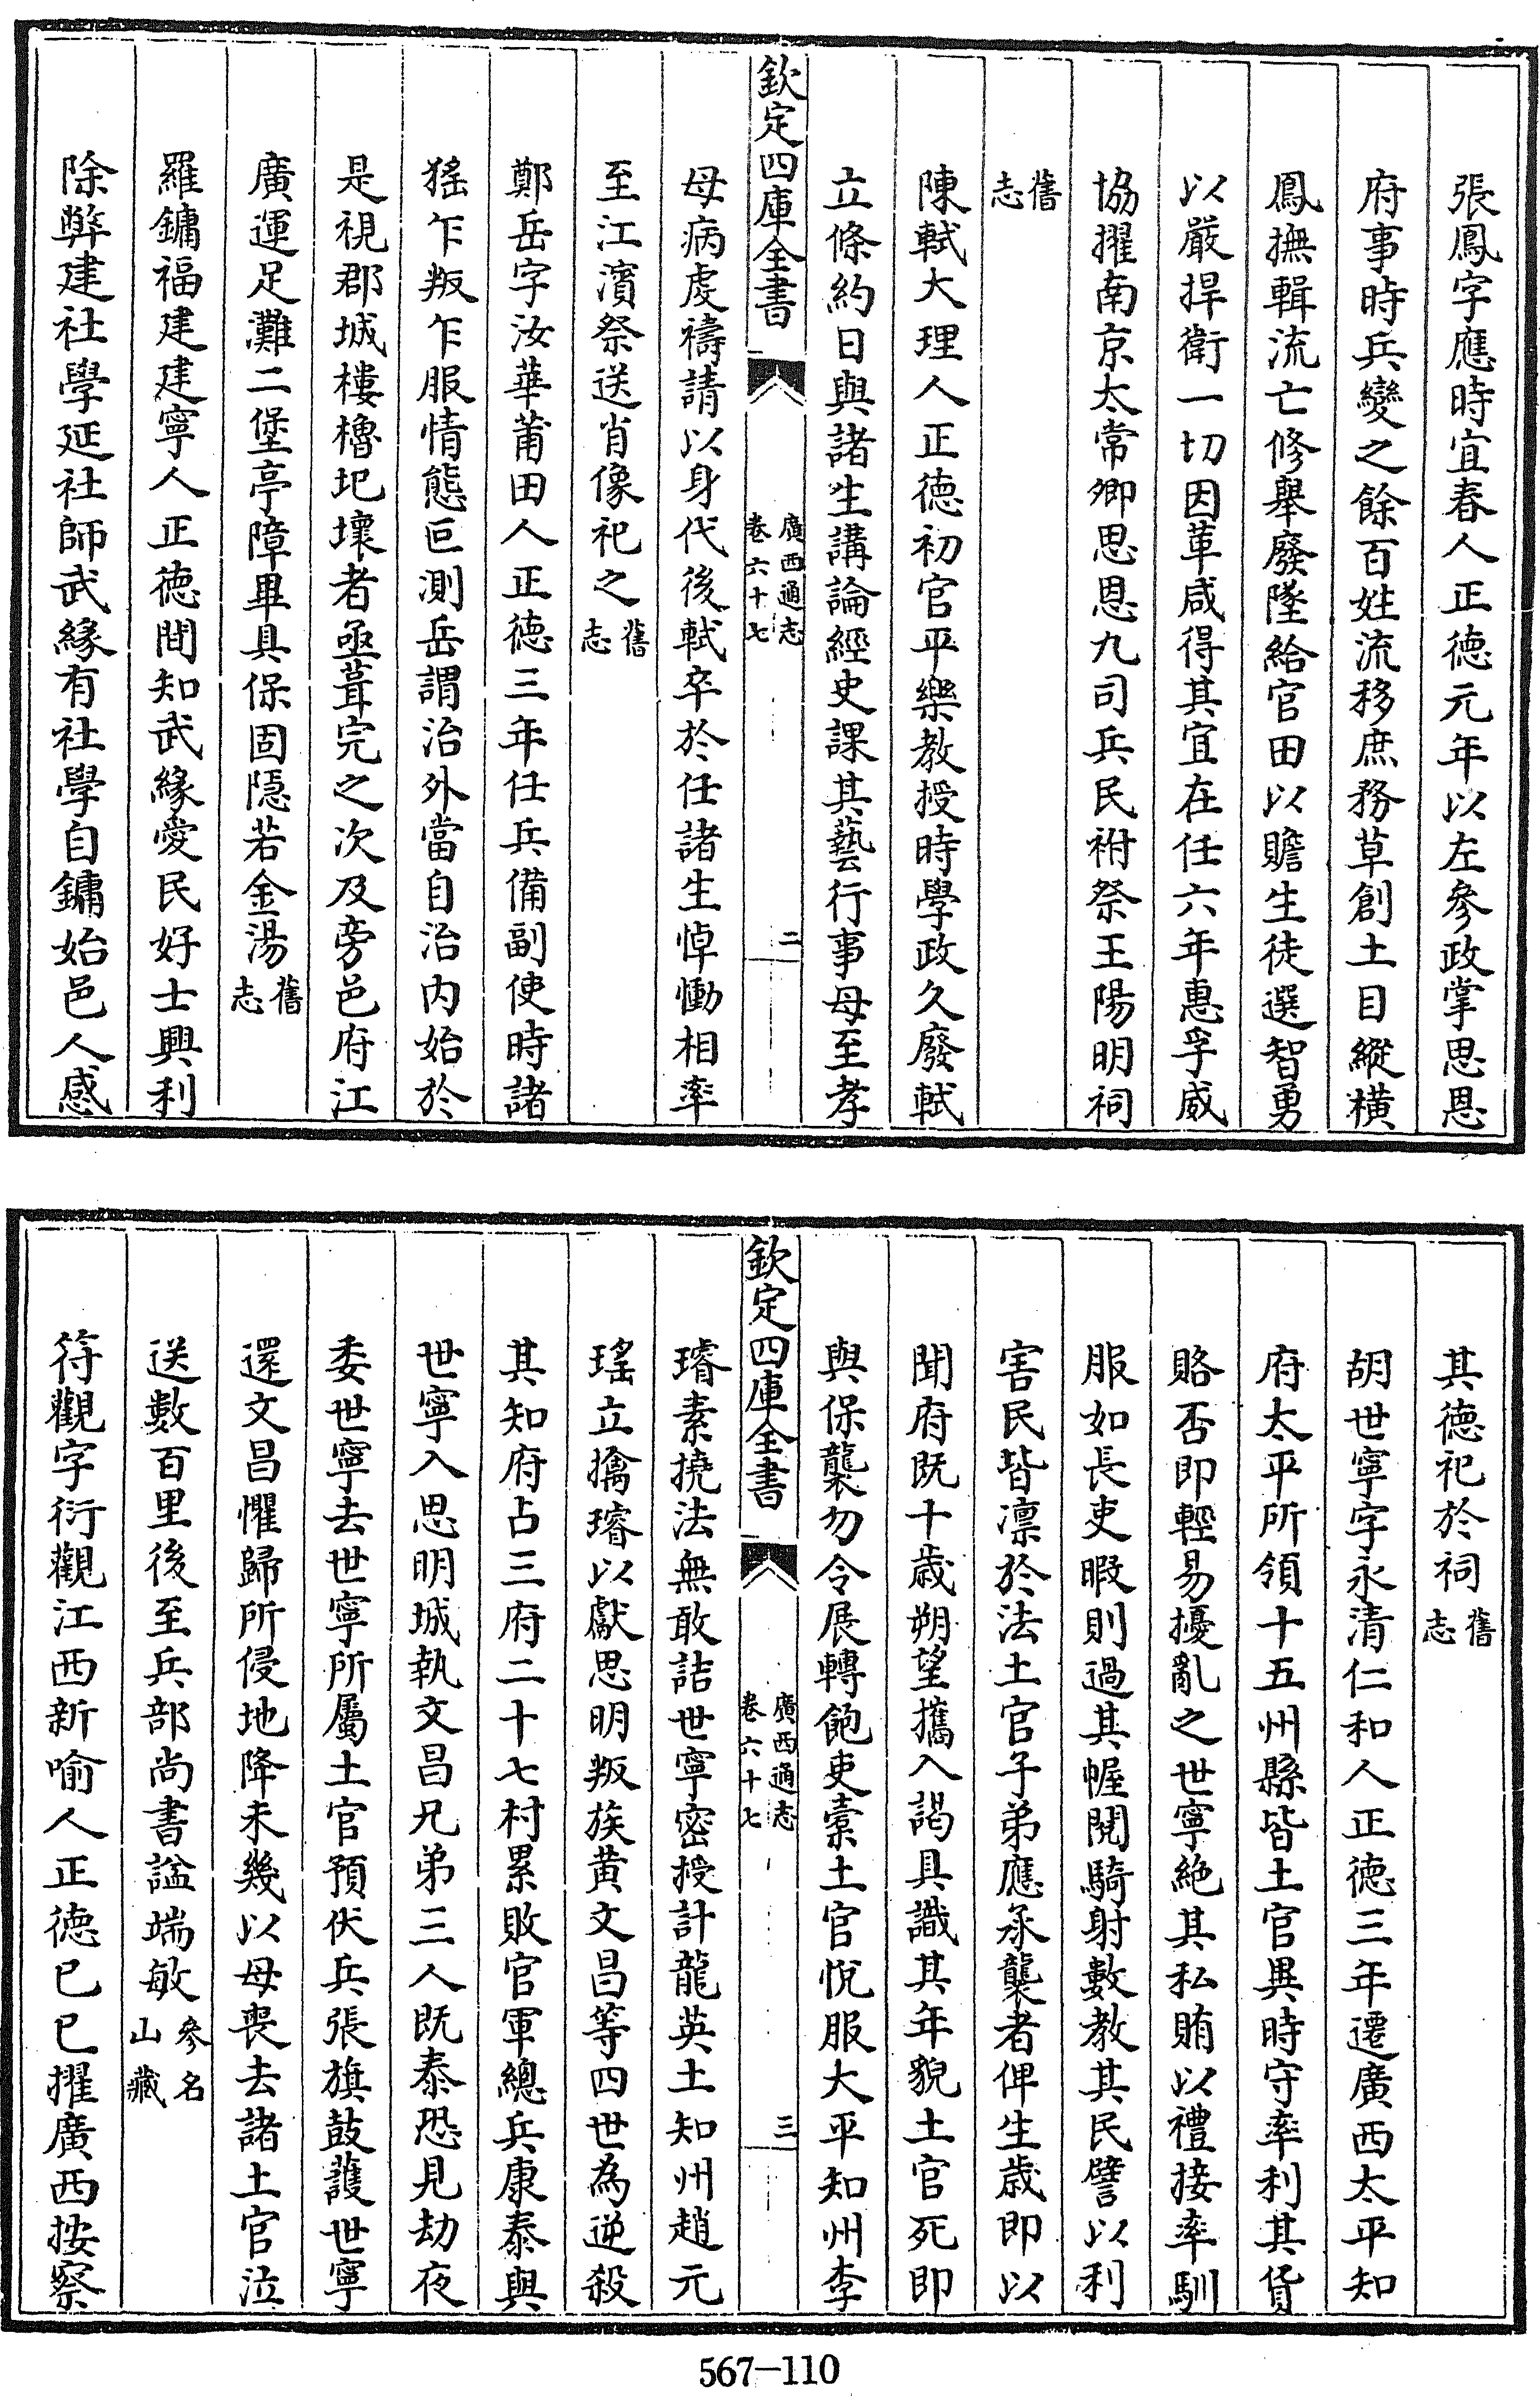 張鳳字應時宜春人正德元年以左參政掌思恩
府事時兵變之餘百姓流移庶務草創土目縱橫
鳳撫輯流亡修舉廢墜給官田以贍生徒選智勇
以嚴捍衛一切因革咸得其宜在任六年惠孚威
協擢南京太常卿思恩九司兵民祔祭王陽明祠
舊志
陳軾大理人正德初官平樂教授時學政久廢軾
立條約日與諸生講論經史課其藝行事母至孝
欽定四庫全書
廣西通志
卷六十七
二
母病虔禱請以身代後軾卒於任諸生悼慟相率
至江濱祭送肖像祀之舊志
鄭岳字汝華莆田人正德三年任兵備副使時諸
猺乍叛乍服情態叵測岳謂治外當自治内始於
是視郡城樓櫓圮壞者亟葺完之次及旁邑府江
廣運足灘二堡亭障畢具保固隱若金湯舊志
羅鏞福建建寧人正德間知武緣愛民好士興利
除弊建社學延社師武緣有社學自鏞始邑人感
其德祀於祠舊志
胡世寧字永清仁和人正德三年遷廣西太平知
府太平所領十五州縣皆土官異時守率利其貨
賂否即輕易擾亂之世寧絶其私賄以禮接率馴
服如長吏暇則過其幄閱騎射數教其民譬以利
害民皆凛於法土官子弟應承襲者俾生歳即以
聞府既十歳朔望攜入謁具識其年貌土官死即
與保襲勿令展轉飽吏橐土官悦服大平知州李
欽定四庫全書
廣西通志
卷六十七
三
璿素撓法無敢詰世寧密授計龍英土知州趙元
瑤立擒璿以獻思明叛族黄文昌等四世為逆殺
其知府占三府二十七村累敗官軍總兵康泰與
世寧入思明城執文昌兄弟三人既泰恐見劫夜
委世寧去世寧所屬土官預伏兵張旗鼓護世寧
還文昌懼歸所侵地降未幾以母喪去諸土官泣
送數百里後至兵部尚書諡端敏參名山藏
符觀字衍觀江西新喻人正德已巳擢廣西按察
567-110